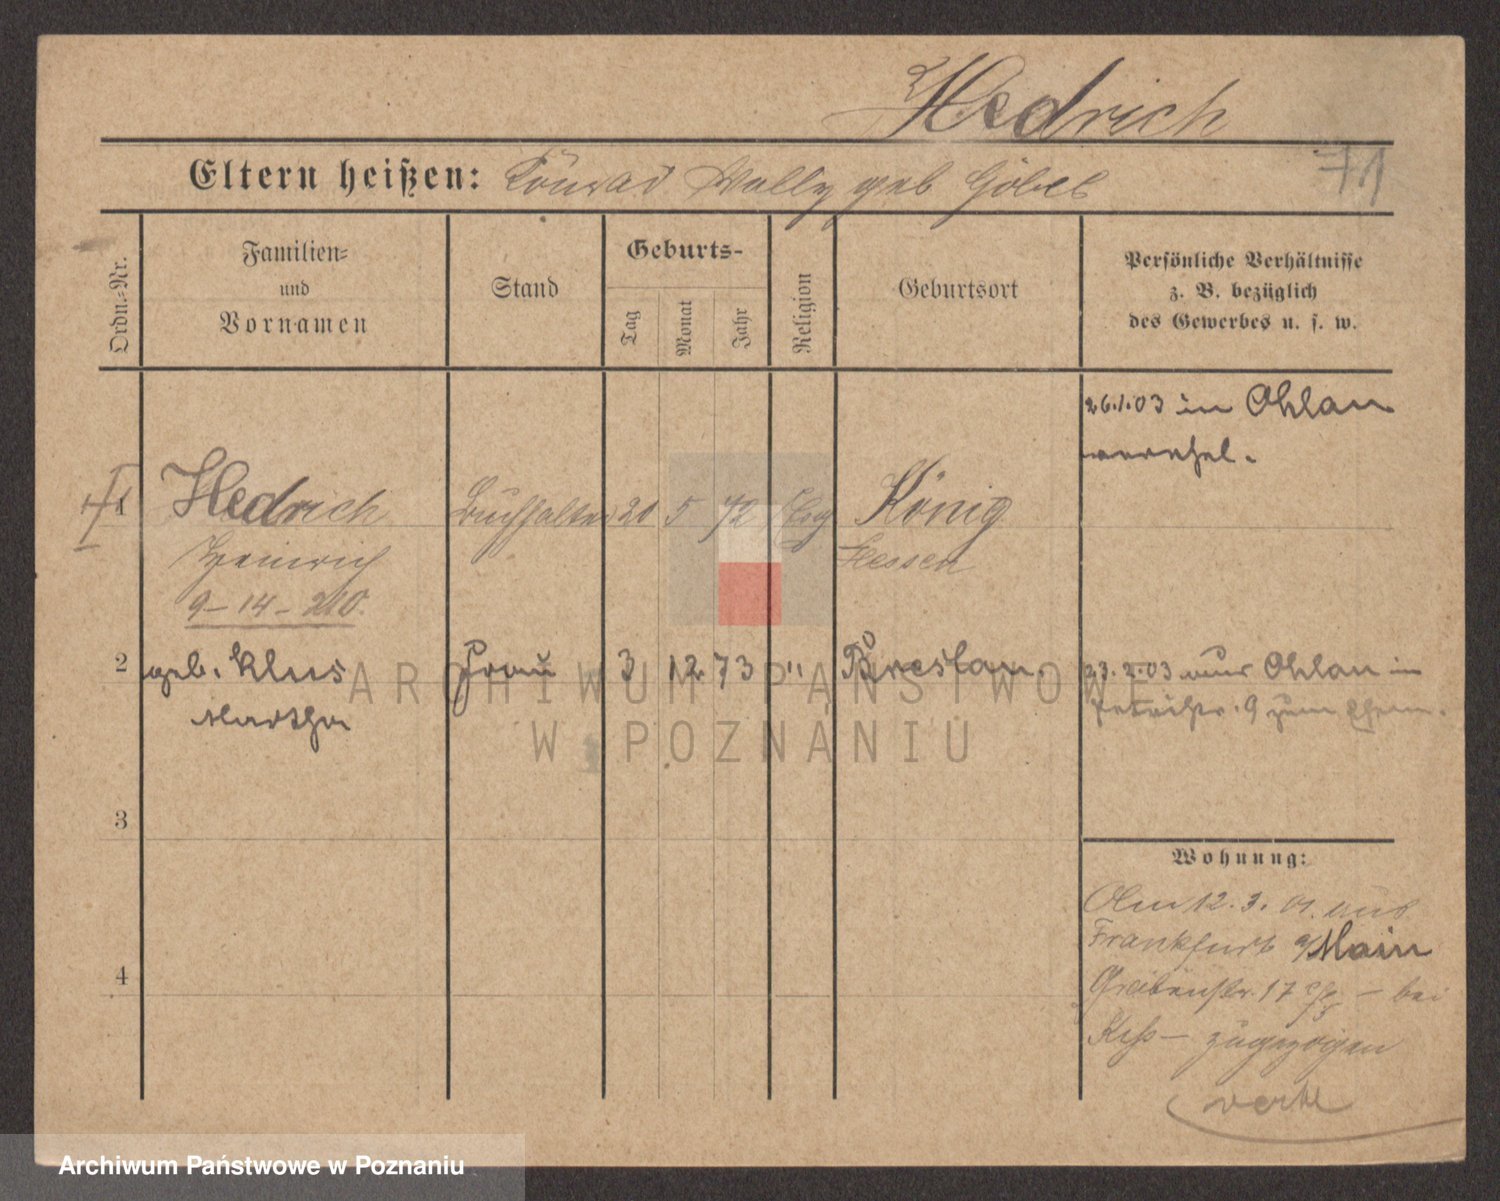 Hedrich
71
Eltern heißen: Konrad Wally geb Göbel
Ordn.=Nr.
Familien=
und
Vornamen
Stand
Geburts-
Tag
Monat
Jahr
Religion
Geburtsort
Persönliche Verhältnisse
z. B. bezüglich
des Gewerbes u. s. w.
26.1.03 in Ohlau
verehel.
1 Hedrich Buchhalter 20 5 72 Evg König
Heinrich Hessen
9-14-210.
2 geb. Klus Frau 3 12 73 " Breslau. 23.2.03 aus Ohlau in
Martha Petristr. 9 zum Ehem.
3
4
Wohnung:
Am 12.3.01. aus
Frankfurt a/Main
Grabenstr. 17 – bei
zugezogen
verhl
ARCHIWUM PAŃSTWOWE
W POZNANIU
Archiwum Państwowe w Poznaniu